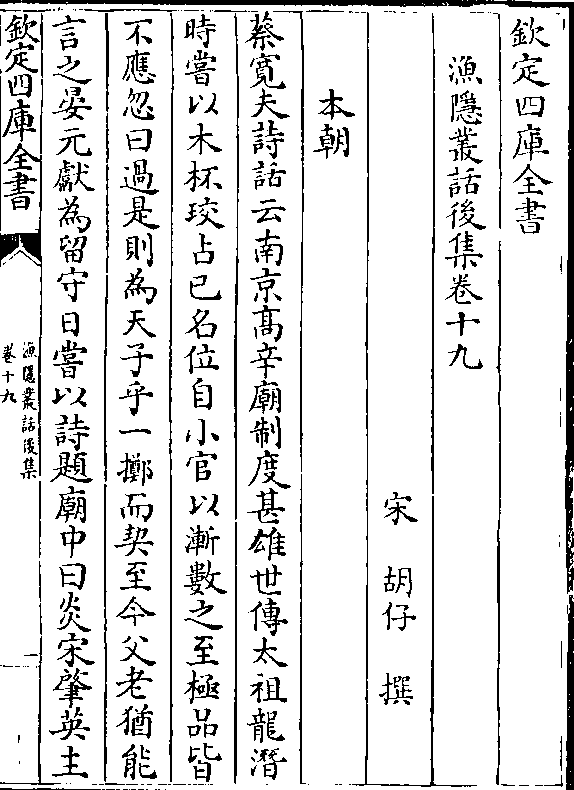 欽定四庫全書
漁隱叢話後集卷十九
宋 胡仔 撰
本朝
蔡寛夫詩話云南京髙辛廟制度甚雄世傳太祖龍潛
時嘗以木杯珓占已名位自小官以漸數之至極品皆
不應忽曰過是則為天子乎一擲而契至今父老猶能
言之晏元獻為留守日嘗以詩題廟中曰炎宋肇英主
欽定四庫全書
漁隱叢話後集
卷十九
一